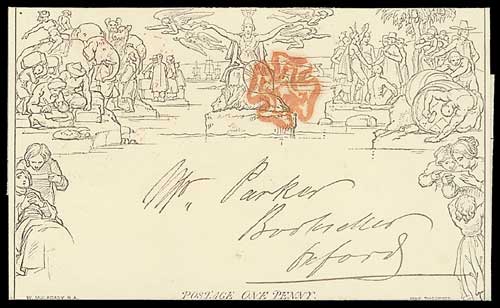 Mr Parker
Bookseller
Oxford
POSTAGE ONE PENNY.
W. MULREADY. R.A.
JOHN THOMPSON